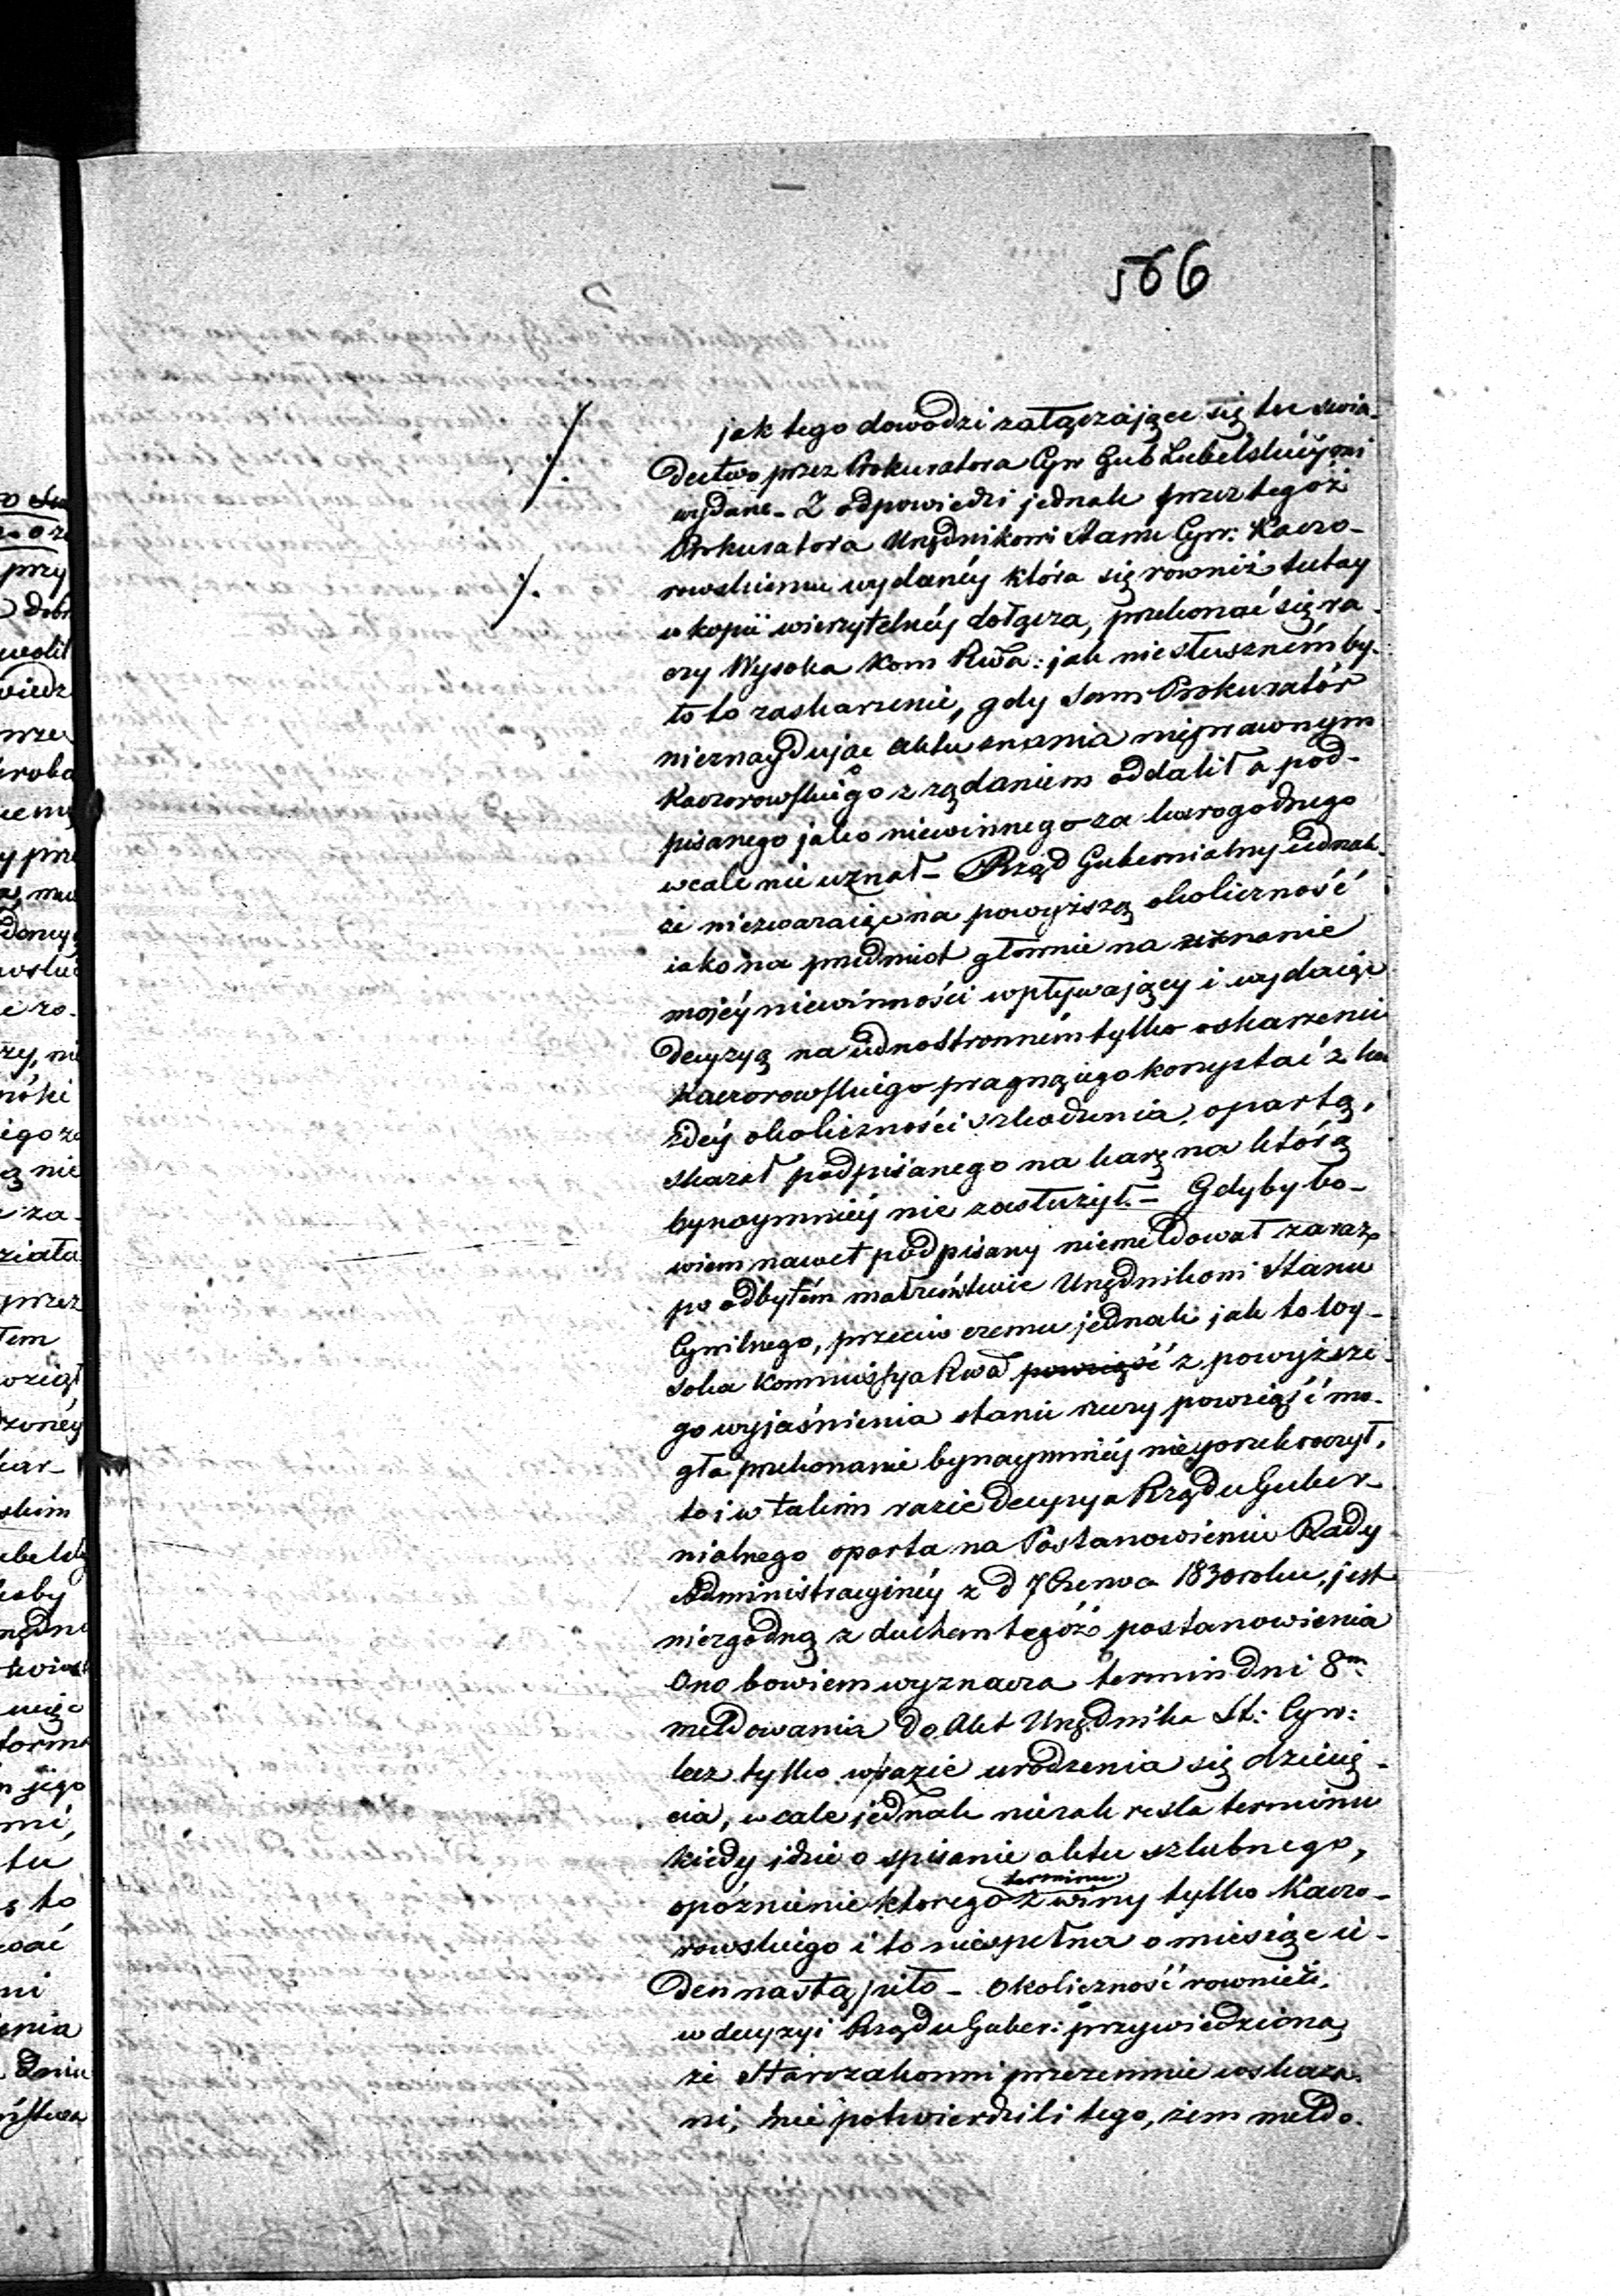 566
jak tego dowodzi załączające się tu świa-
dectwo przez Prokuratora Cyw Gub Lubelskiéy mi
wydane - Z odpowiedzi jednak przez tegoż
Prokuratora Urzędnikowi Stanu Cyw: Kaczo-
rowskiemu wydanéy która się rowniż tutay
w kopii wierzytelnéy dołącza, przekonać się ra-
czy Wysoka Kom Rwa: jak niesłuszném by-
ło to zaskarzenie, gdy sam Prokurator
nieznayduiąc aktu znania nieprawnym
Kaczorowskiégo z ządaniem oddalił a pod-
pisanego jako niewinnego za karogodnego
wcale nie uznał - Rząd Gubernialny jednak-
że niezwaraiąc na powyższą okoliczność
iako na przedmiot głownie na uznanie
mojéy niewinności wpływający i wydaiąc
decyzyą na jednostronném tylko oskarzeniu
Kaczorowskiego pragnącego korzystać z ka
żdéy okoliczności szkodzenia, opartą,
skazał podpisanego na karę na którą
bynaymniéy nie zasłużył. - Gdyby bo-
wiem nawet podpisany niemeldował zaraz
po odbytém małżeństwie Urzędnikowi Stanu
Cywilnego, przeciw czemu jednak jak to Wy-
soka Kommissya Rwa powziąść z powyższe-
go wyjaśnienia stanu rzeczy powziąść mo-
gła przekonanie bynaymniéy nieprzekroczył,
to i w takim razie decyzya Rządu Guber-
nialnego oparta na Postanowieniu Rady
Administracyinéy z d 7 Czerwca 1830 roku, jest
niezgodną z duchem tegóż postanowienia
Ono bowiem wyznacza termin dni 8m
meldowania do Akt Urzędnika St: Cyw:
lecz tylko w razie urodzenia się dziecię-
cia, wcale jednak niezakresla terminu
kiedy idzie o spisanie aktu szlubnego,
terminu
opóznienie ktorego z winy tylko Kaczo-
rowskiego i to niespełna o miesiąc ie-
den nastąpiło - Okoliczność rownież,
w decyzyi Rządu Guber: przywiedziona
że Starozakonni przezemnie wskaza-
ni, nie potwierdzili tego, żem meldo-